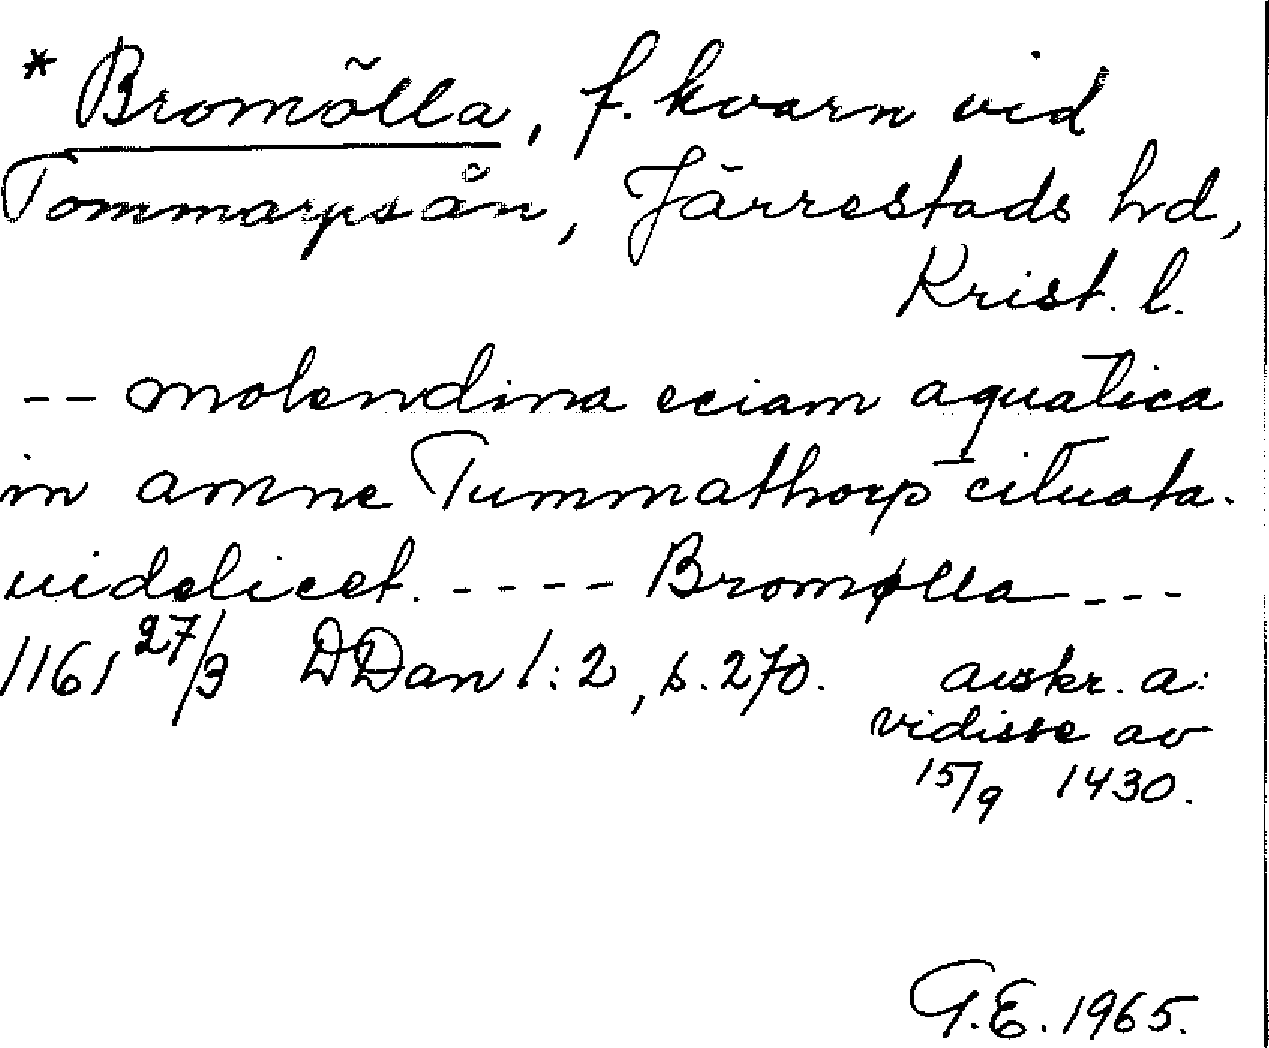 * Bromölla, f. kvarn vid
Tommarpsån, Järrestads hd,
Krist. l.
-- molendina eciam aquatica
in amne Tummathorp cituata.
uidelicet. ---- Bromølla ---
1161 27/3 DDan 1:2, s. 270. avskr. a:
vidisse av
15/9 1430.
G.E. 1965.